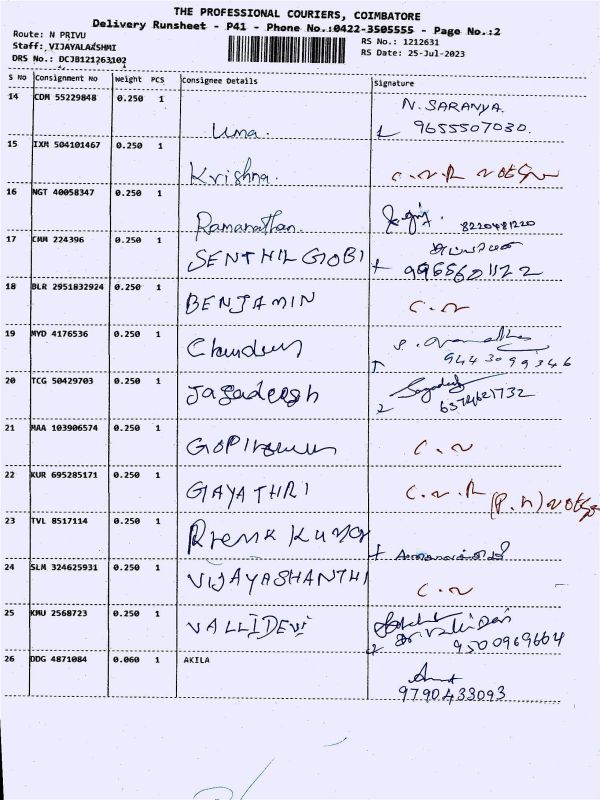 THE PROFESSIONAL COURIERS, COIMBATORE
Delivery Runsheet - P41 - Phone No.:0422-3505555 - Page No.:2
Route: N PRIVU
Staff: VIJAYALAKSHMI
DRS No.: DCJB121263102
RS No.: 1212631
RS Date: 25-Jul-2023
S No Consignment No Weight PCS Consignee Details Signature
14 CDM 55229848 0.250 1 Uma. N. SARANYA.
9655507030.
15 IXM 504101467 0.250 1 Krishna. C.N.R
16 NGT 40058347 0.250 1 Ramanathan. 8220481220
17 CMM 224396 0.250 1 SENTHIL GOBI
9965601122
18 BLR 2951832924 0.250 1 BENJAMIN C.N
19 MYD 4176536 0.250 1
9443099346
20 TCG 50429703 0.250 1 Jagadeesh
21 MAA 103906574 0.250 1 C.N
22 KUR 695285171 0.250 1 GAYATHRI C.N.R
23 TVL 8517114 0.250 1 Kumar
24 SLM 324625931 0.250 1 VIJAYASHANTHI C.N
25 KMU 2568723 0.250 1 VALLIDEVI
9500969604
26 DDG 4871084 0.060 1 AKILA
9790433093